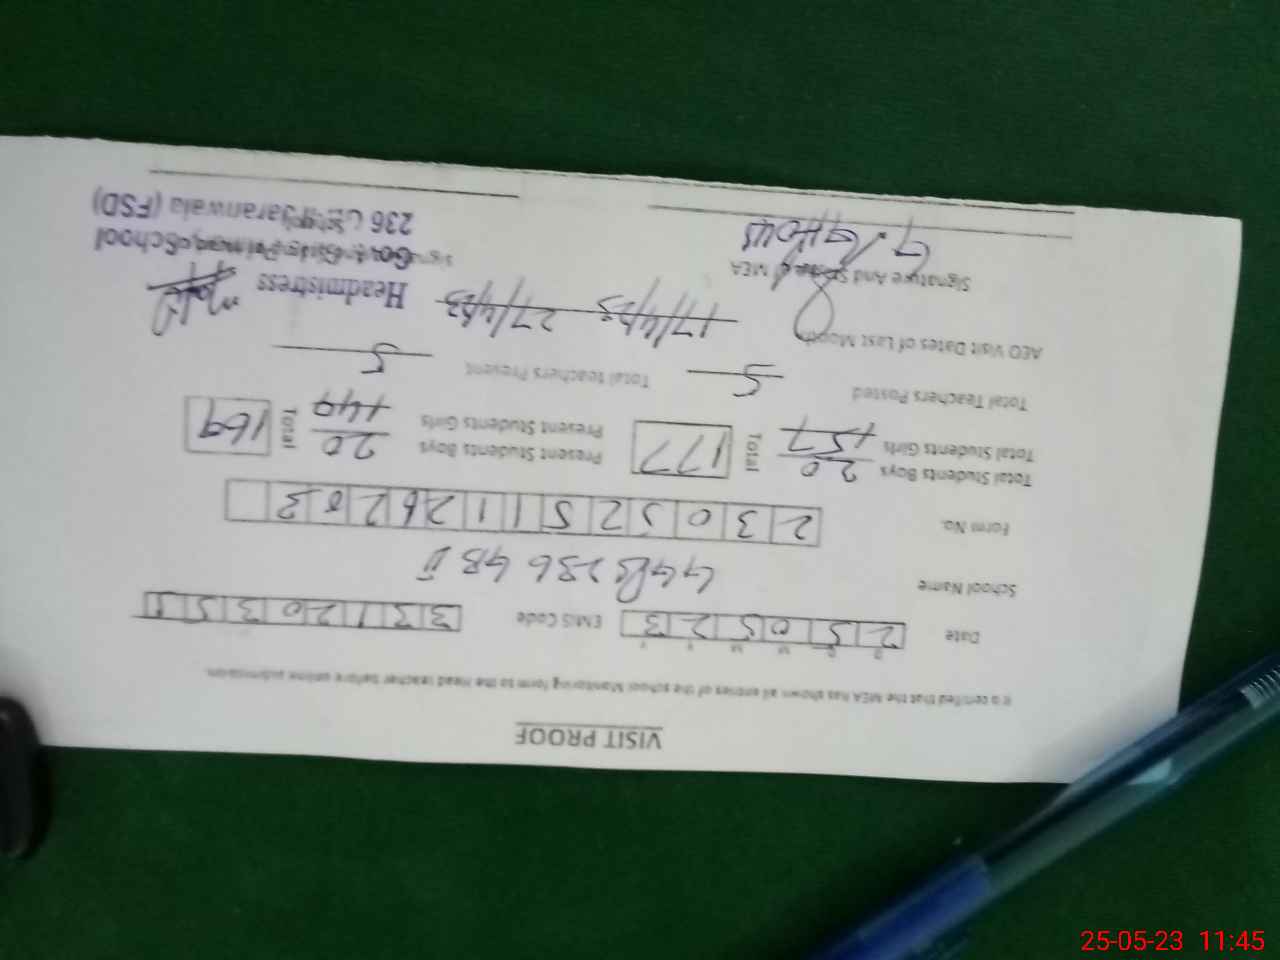 VISIT PROOF
It is certified that the MEA has shown all entries of the school Monitoring form to the Head teacher before online submission.
D D M M Y Y
Date 250523 EMIS Code 33120351
School Name 236 GB II
Form No. 2305251126202
Total Students Boys 20 Present Students Boys 20
Total Students Girls +157 Total 177 Present Students Girls +149 Total 169
Total Teachers Posted 5 Total teachers Present 5
AEO Visit Dates of Last Month 17/4/23 27/4/23
Headmistress
Signature And Stamp MEA
Govt. Girls Primary School
G. Ghous
236 Jaranwala (FSD)
25-05-23 11:45